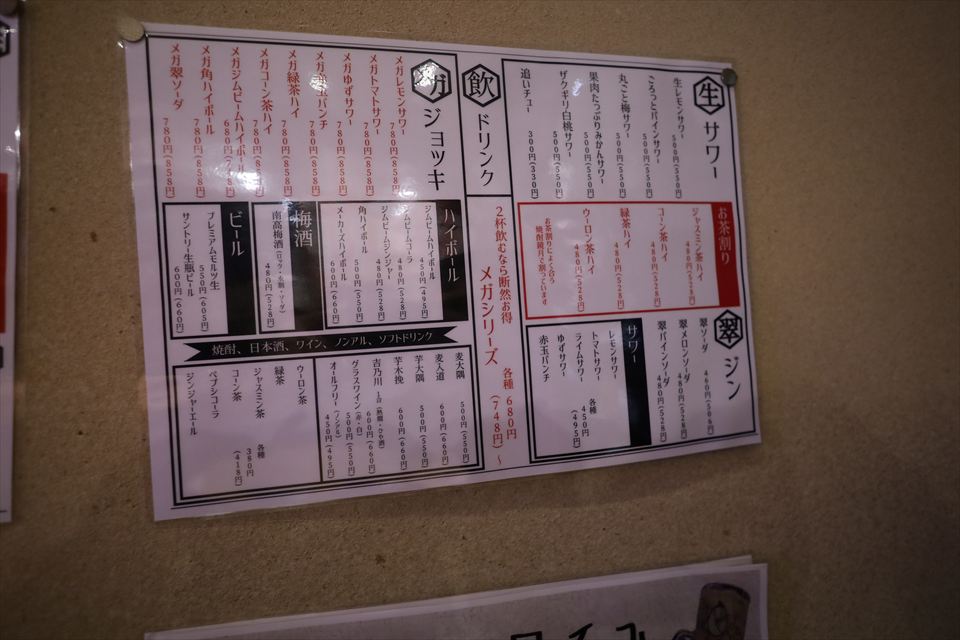 生サワー
生レモンサワー 500円(550円)
ごろっとパインサワー 500円(550円)
丸ごと梅サワー 500円(550円)
果肉たっぷりみかんサワー 500円(550円)
ザクギリ白桃サワー 500円(550円)
追いチュー 300円(330円)
お茶割り
ジャスミン茶ハイ 480円(528円)
コーン茶ハイ 480円(528円)
緑茶ハイ 480円(528円)
ウーロン茶ハイ 480円(528円)
お茶割りによく合う
焼酎鏡月で割っています
翠ジン
翠ソーダ 460円(506円)
翠メロンソーダ 480円(528円)
翠パインソーダ 480円(528円)
サワー
レモンサワー
トマトサワー
ライムサワー
ゆずサワー
赤玉パンチ
各種 450円
(495円)
飲ドリンク
2杯飲むなら断然お得
メガシリーズ
各種 680円
(748円)〜
メガジョッキ
メガレモンサワー 780円(858円)
メガトマトサワー 780円(858円)
メガゆずサワー 780円(858円)
メガ赤玉パンチ 780円(858円)
メガ緑茶ハイ 780円(858円)
メガコーン茶ハイ 780円(858円)
メガジムビームハイボール 680円(748円)
メガ角ハイボール 780円(858円)
メガ翠ソーダ 780円(858円)
ハイボール
ジムビームハイボール 450円(495円)
ジムビームコーラ 480円(528円)
ジムビームジンジャー 480円(528円)
角ハイボール 500円(550円)
メーカーズハイボール 600円(660円)
梅酒
南高梅酒(ロック・水割・ソーダ) 480円(528円)
ビール
プレミアムモルツ生 550円(605円)
サントリー生瓶ビール 600円(660円)
焼酎、日本酒、ワイン、ノンアル、ソフトドリンク
麦大隅 500円(550円)
麦入道 600円(660円)
芋大隅 500円(550円)
芋木挽 600円(660円)
吉乃川 1合(熱燗・ひや酒) 600円(660円)
グラスワイン(赤・白) 500円(550円)
オールフリー(ノンアル) 450円(495円)
ウーロン茶
緑茶
ジャスミン茶
コーン茶
ペプシコーラ
ジンジャーエール
各種
380円
(418円)